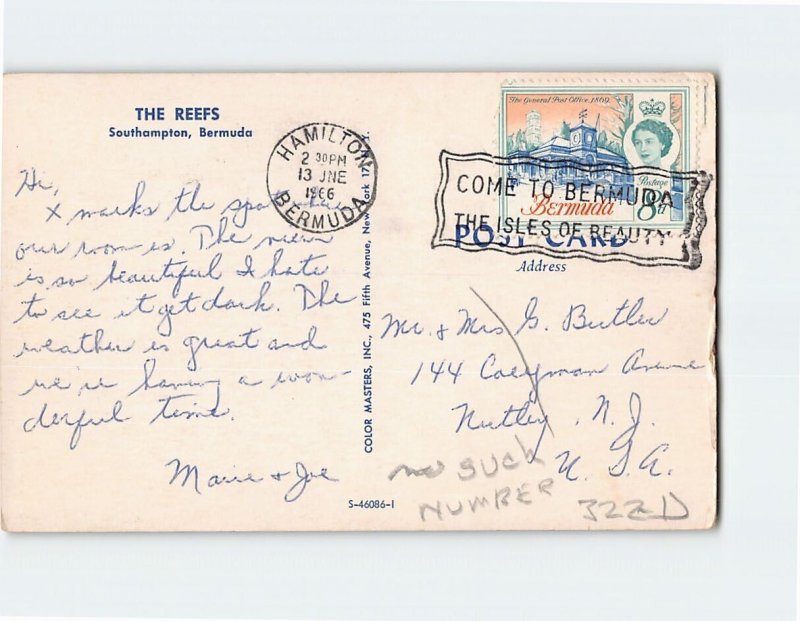 THE REEFS
Southampton, Bermuda
Hi,
X marks the spot where
our room is. The view
is so beautiful I hate
to see it get dark. The
weather is great and
we're having a won-
derful time.
Marie & Joe
HAMILTON
2 30PM
13 JNE
1966
BERMUDA
COLOR MASTERS, INC., 475 Fifth Avenue, New York 17,
S-46086-1
The General Post Office 1869
Postage
Bermuda
8d
COME TO BERMUDA
THE ISLES OF BEAUTY
POST CARD
Address
Mr. & Mrs G. Butler
144 Coeyman Avenue
Nutley, N. J.
U. S. A.
no SUCH
NUMBER
322D